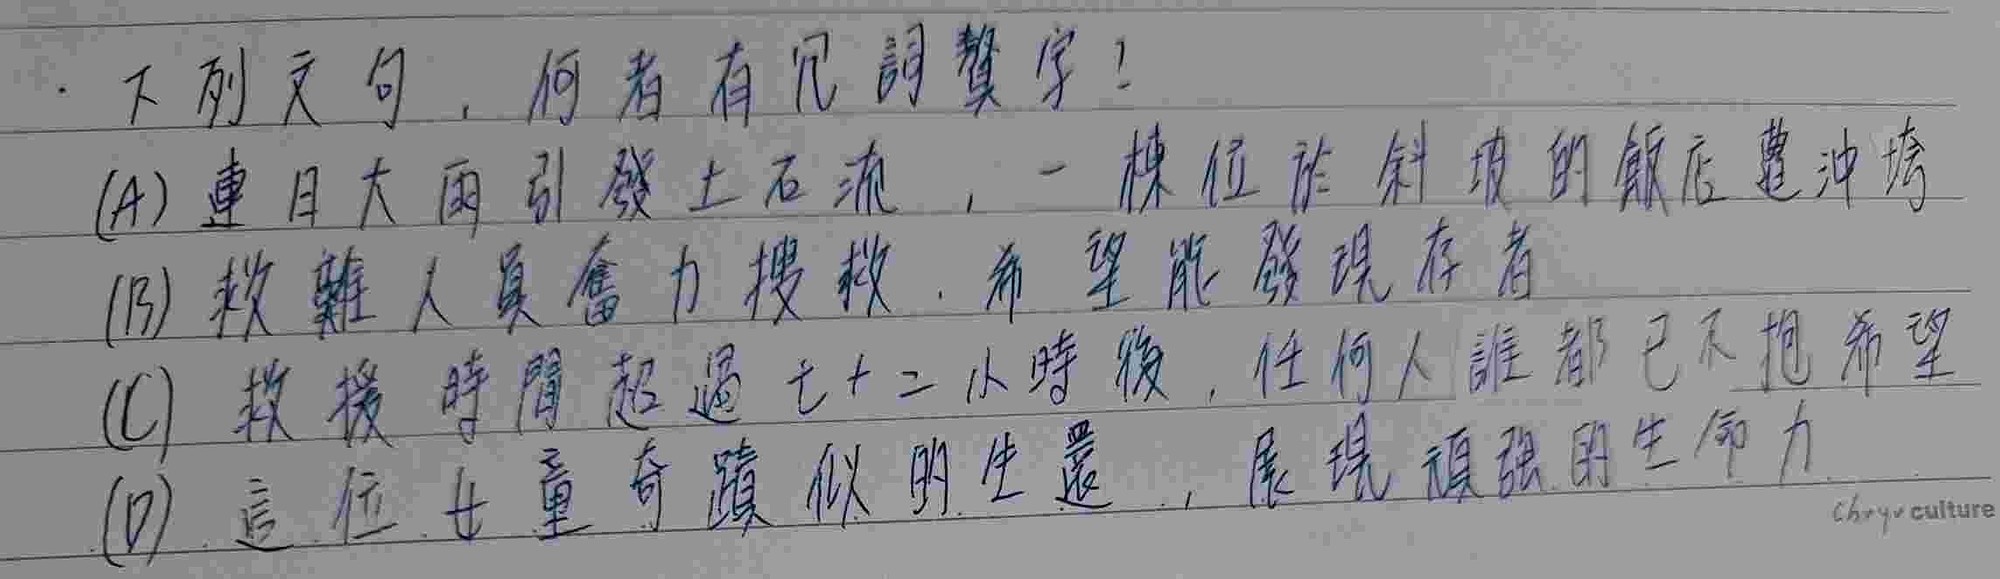 · 下列文句，何者有冗詞贅字！
(A) 連日大雨引發土石流，一棟位於斜坡的飯店遭沖垮
(B) 救難人員奮力搜救，希望能發現存者
(C) 救援時間超過七十二小時後，任何人誰都已不抱希望
(D) 這位女童奇蹟似的生還，展現頑強的生命力
culture